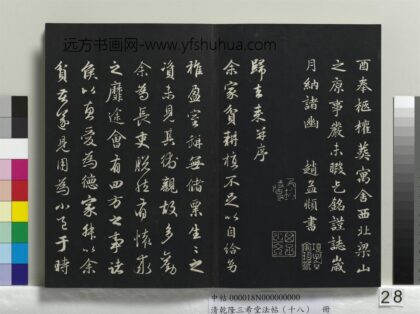 远方书画网-www.yfshuhua.com
酉奉柩權葬寓舍西北梁山
之原事嚴未暇乞銘謹誌歲
月納諸幽 趙孟頫書
歸去來并序
余家貧耕植不足以自給幼
稚盈室缾無儲粟生生之
資未見其術親故多勸
余為長吏脫然有懷求
之靡途會有四方之事諸
侯以惠愛為德家叔以余
貧苦遂見用為小邑于時
中帖 000018N000000000
清乾隆三希堂法帖(十八) 冊
28